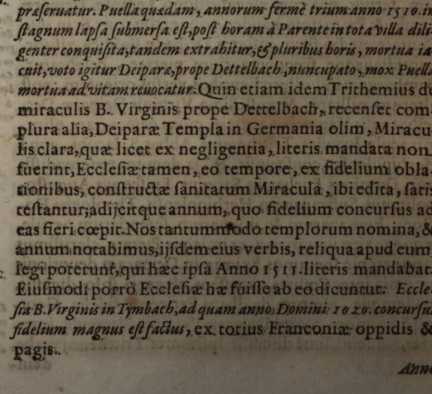 præseruatur. Puella quædam, annorum fermè trium anno 1510. in
stagnum lapsa submersa est, post horam à Parente in tota villa dili-
genter conquisita, tandem extrahitur, & pluribus horis, mortua ia-
cuit, voto igitur Deiparæ, prope Dettelbach, nuncupato, mox Puella
mortua ad vitam reuocatur. Quin etiam idem Trithemius de
miraculis B. Virginis prope Dettelbach, recenset com-
plura alia, Deiparæ Templa in Germania olim, Miracu-
lis clara, quæ licet ex negligentia, literis mandata non
fuerint, Ecclesiæ tamen, eo tempore, ex fidelium obla-
tionibus, constructæ sanitatum Miracula, ibi edita, satis
testantur; adijcitque annum, quo fidelium concursus ad
eas fieri cœpit. Nos tantummodo templorum nomina, &
annum notabimus, ijsdem eius verbis, reliqua apud eum
legi poterunt, qui hæc ipsa Anno 1511. literis mandabat.
Eiusmodi porrò Ecclesiæ hæ fuisse ab eo dicuntur. Eccle-
sia B. Virginis in Tymbach, ad quam anno Domini concursus
fidelium magnus est factus, ex totius Franconiæ oppidis &
pagis.
Anno